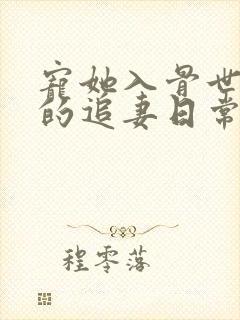 寵她入骨世
的追妻日常
程零落